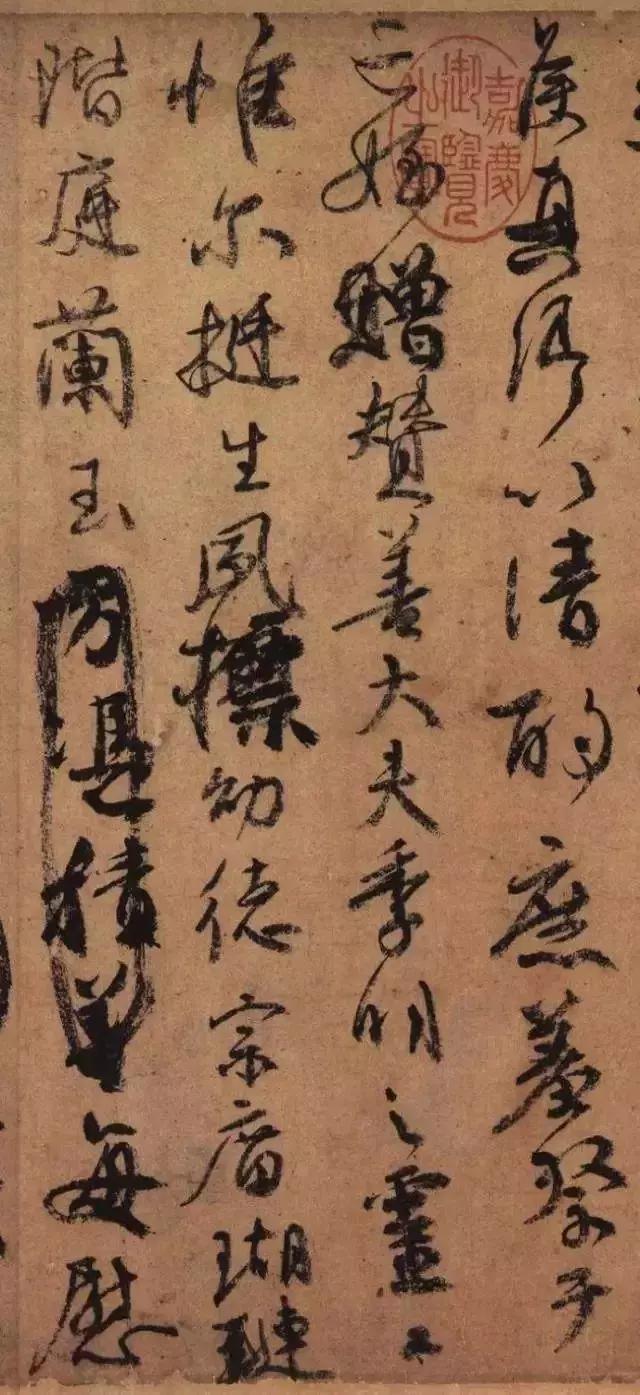 侯真卿以清酌庶羞祭于
亡姪贈贊善大夫季明之靈曰
惟尔挺生夙標幼德宗庿瑚璉
階庭蘭玉方憑積善每慰
嘉慶御覽之寶